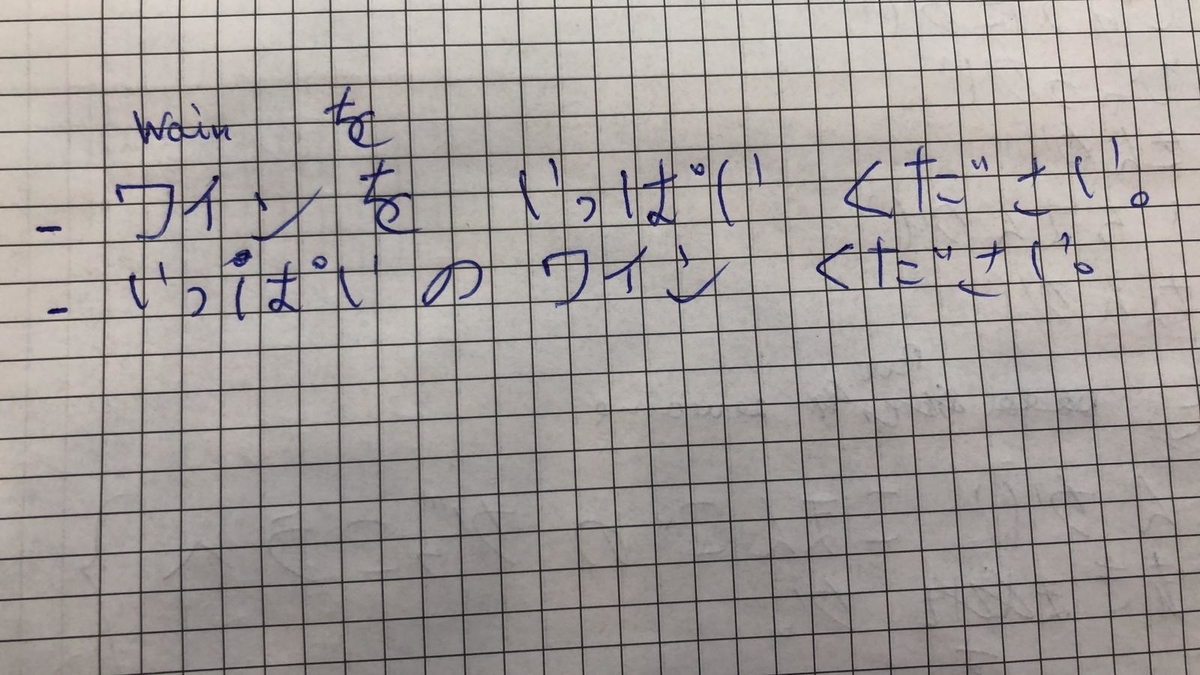 Wain を
- ワインを いっぱい ください。
- いっぱいの ワイン ください。